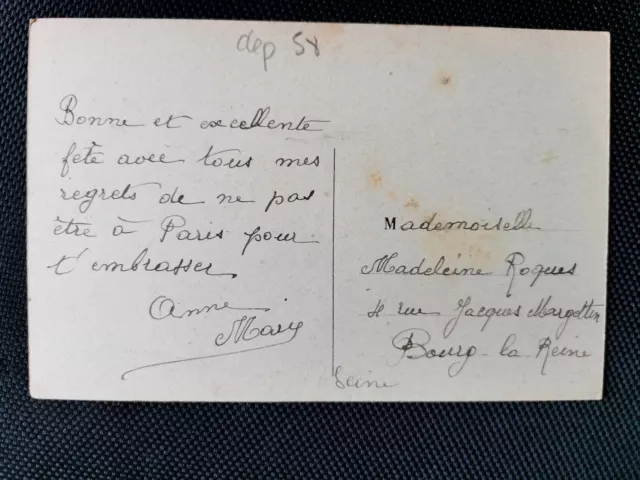 dep 58
Bonne et excellente
fête avec tous mes
regrets de ne pas
être à Paris pour
t'embrasser
Anne
Mary
Mademoiselle
Madeleine Roques
4 rue Jacques Margottin
Bourg-la-Reine
Seine